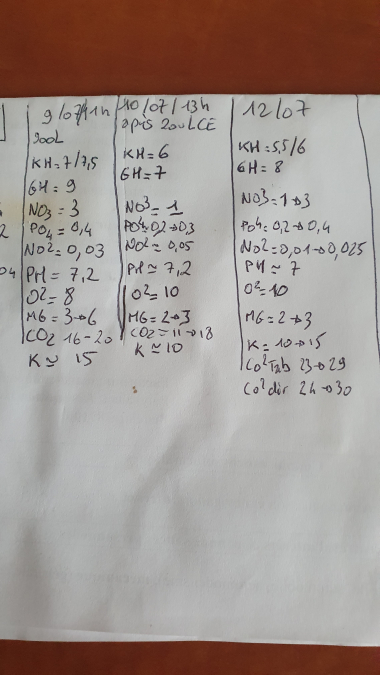 9/07/11h
900L
KH=7/7,5
GH=9
NO3=3
PO4=0,4
NO2=0,03
PH=7,2
O2=8
MG=3→6
CO2 16-20
K≃ 15
10/07/13h
après 200L CE
KH=6
GH=7
NO3=1
PO4=0,2→0,3
NO2≃0,05
PH≃7,2
O2=10
MG=2→3
CO2=11→18
K≃10
12/07
KH=5,5/6
GH=8
NO3=1→3
PO4=0,2→0,4
NO2=0,01→0,025
PH≃7
O2=10
MG=2→3
K=10→15
CO2 Tab 23→29
CO2 dir 24→30
2
04